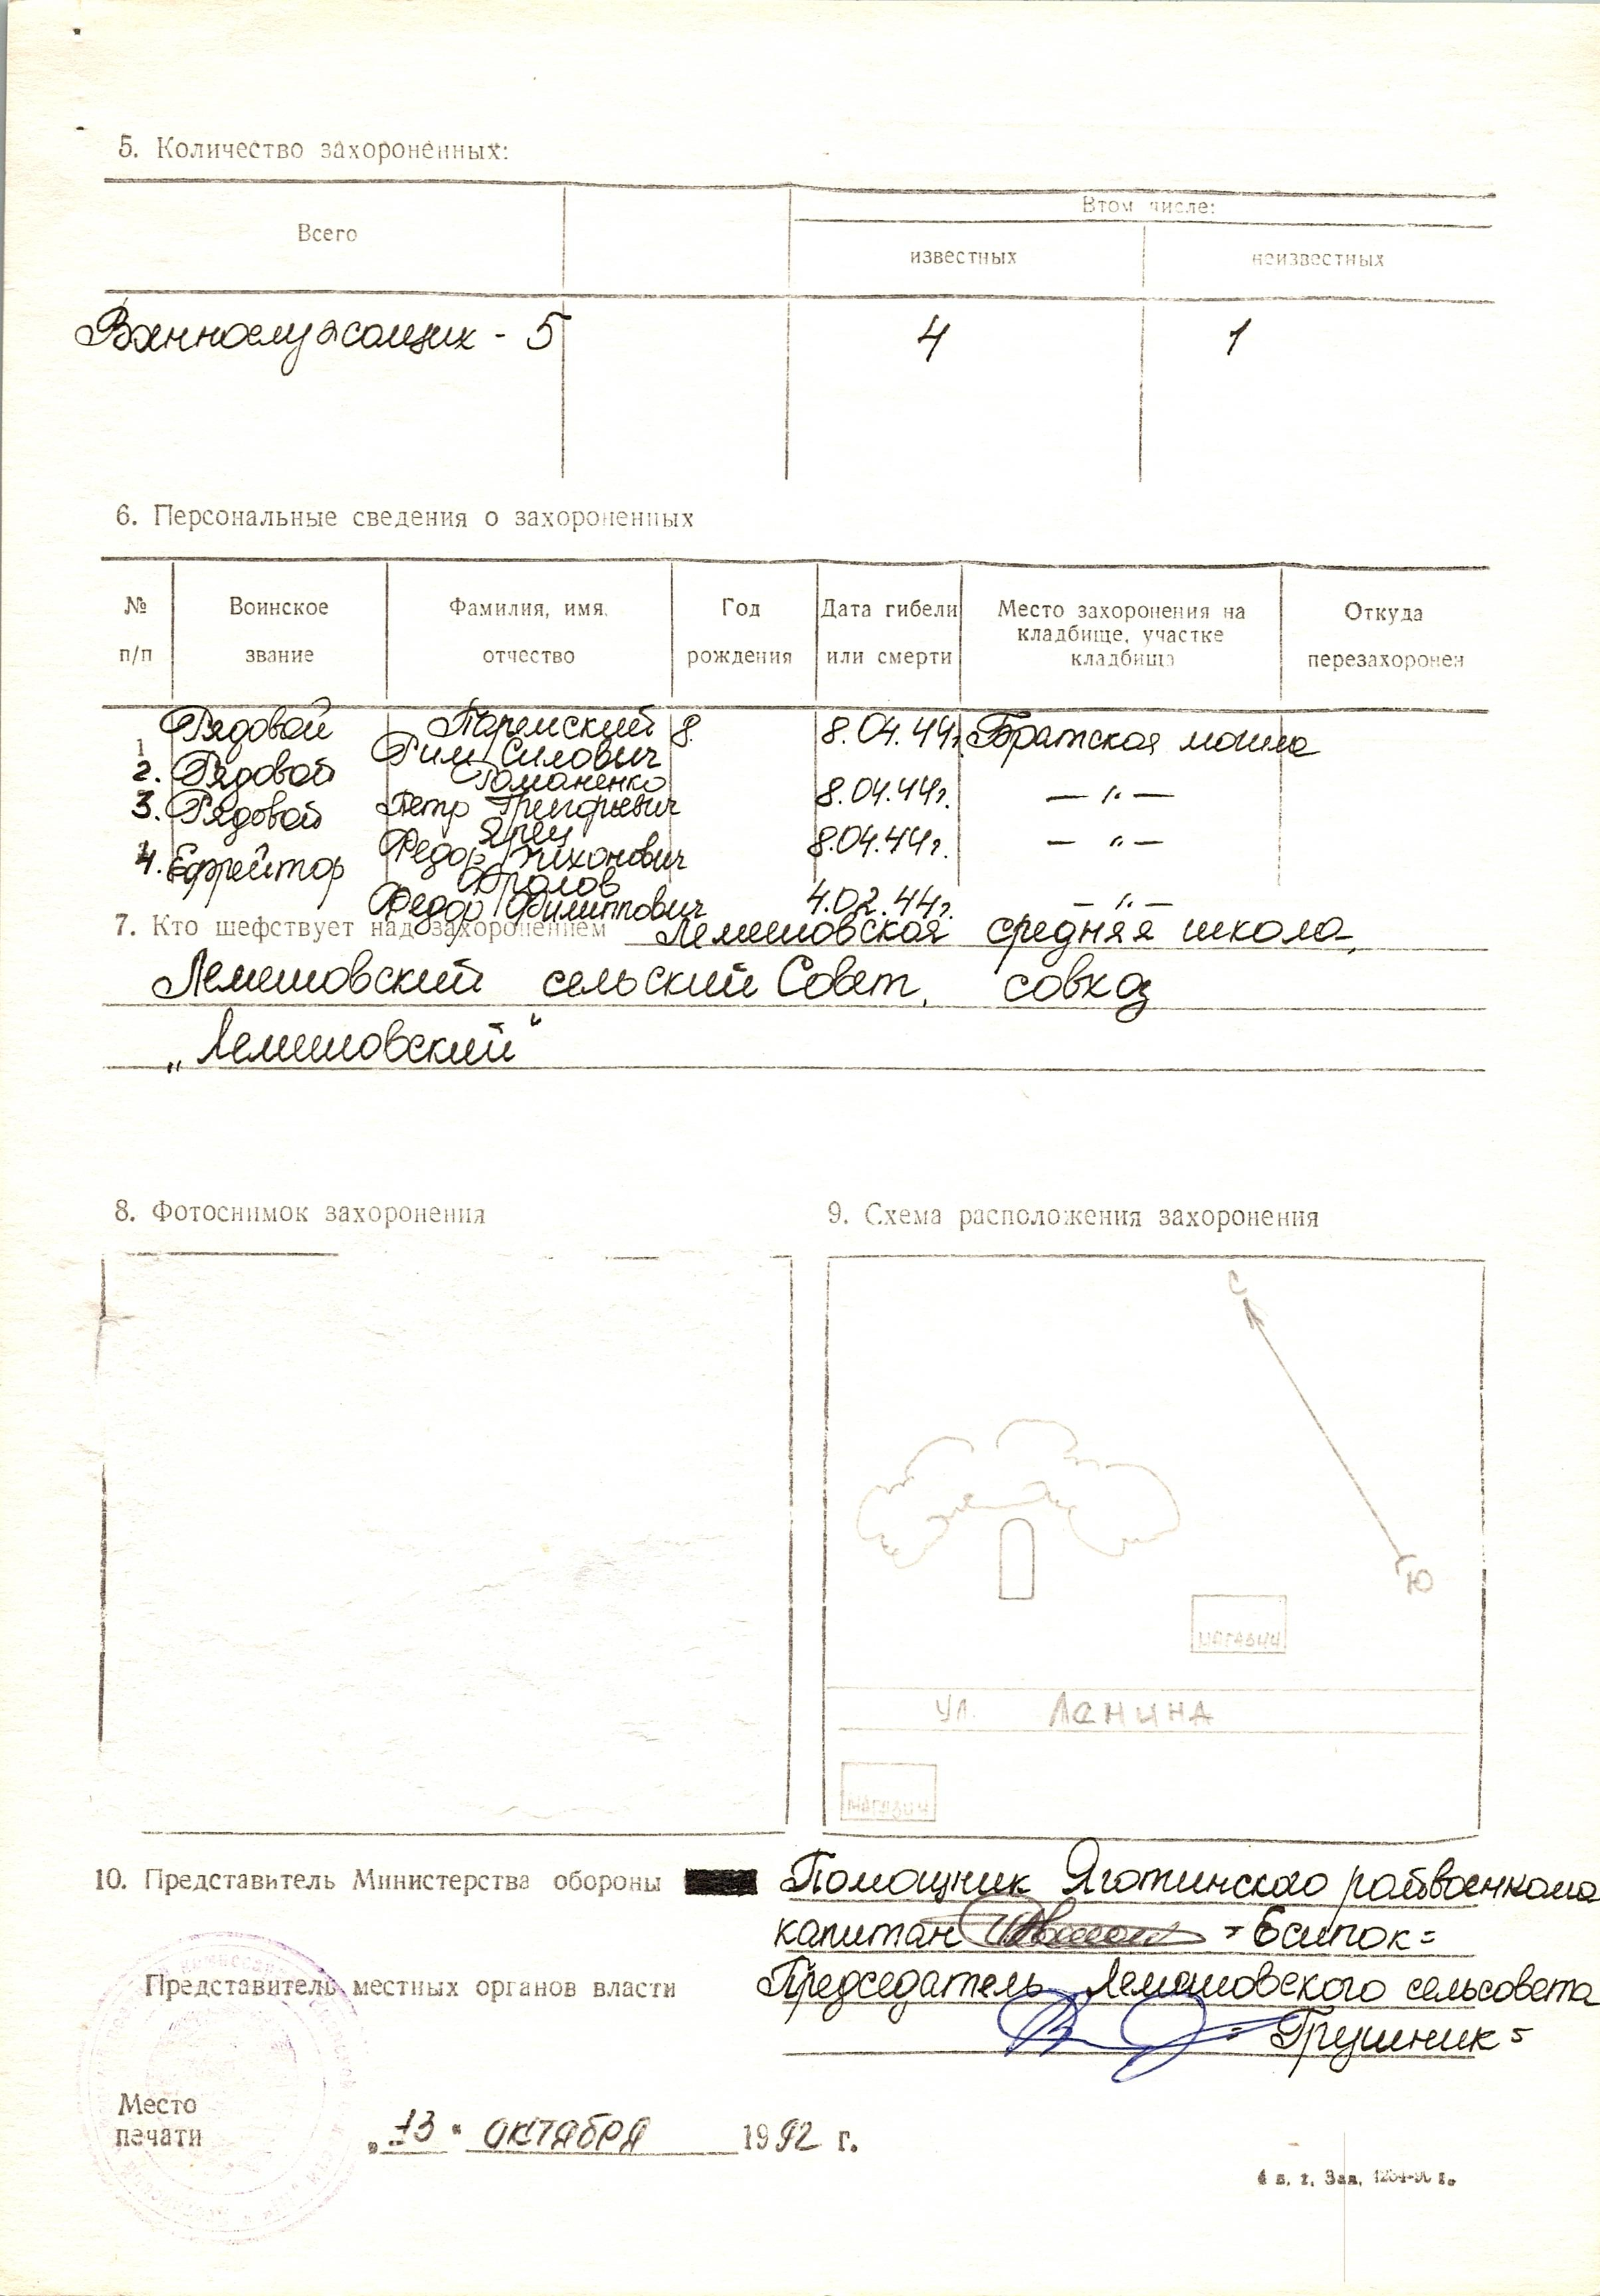 5. Количество захороненных:
Всего
Втом числе:
известных
неизвестных
Военнослужащих - 5
4
1
6. Персональные сведения о захороненных
№ п/п
Воинское звание
Фамилия, имя, отчество
Год рождения
Дата гибели или смерти
Место захоронения на кладбище, участке кладбища
Откуда перезахоронен
1 Рядовой Паремский Рим Силович 8. 8.04.44г. Братская могила
2. Рядовой Романенко Петр Григорьевич 8.04.44г. — " —
3. Рядовой Ярец Федор Тихонович 8.04.44г. — " —
4. Ефрейтор Фролов Федор Филиппович 4.02.44г. — " —
7. Кто шефствует над захоронением Лемешовская средняя школа,
Лемешовский сельский Совет, совхоз
„Лемешовский"
8. Фотоснимок захоронения
9. Схема расположения захоронения
С
Ю
магазин
ул. Ленина
магазин
10. Представитель Министерства обороны Помощник Яготинского райвоенкома
капитан = Есипок =
Представитель местных органов власти Председатель Лемешовского сельсовета
= Грушник =
Место
печати
„13" октября 1992 г.